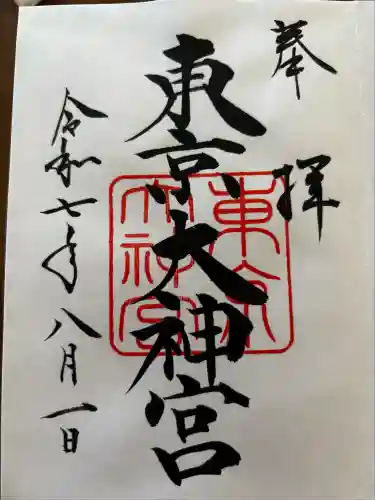 奉拝
東京大神宮
東京大神宮
令和七年八月一日